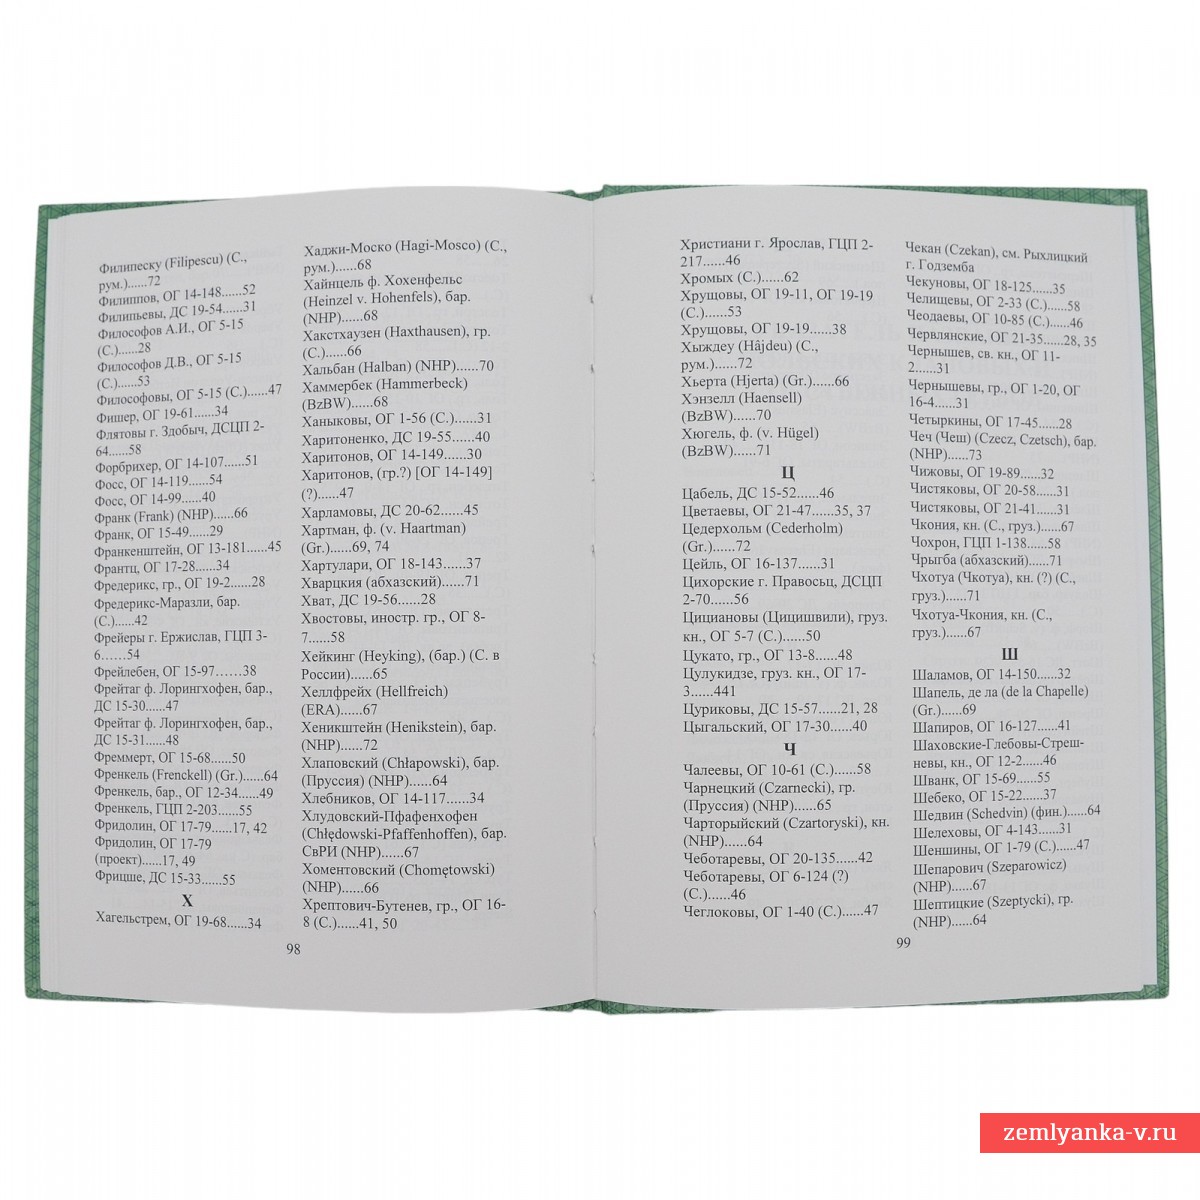 Филипеску (Filipescu) (С.,
рум.)......72
Филиппов, ОГ 14-148......52
Филипьевы, ДС 19-54......31
Философов А.И., ОГ 5-15
(С.)......28
Философов Д.В., ОГ 5-15
(С.)......53
Философовы, ОГ 5-15 (С.)......47
Фишер, ОГ 19-61......34
Флятовы г. Здобыч, ДСЦП 2-
64......58
Форбрихер, ОГ 14-107......51
Фосс, ОГ 14-119......54
Фосс, ОГ 14-99......40
Франк (Frank) (NHP)......66
Франк, ОГ 15-49......29
Франкенштейн, ОГ 13-181......45
Франтц, ОГ 17-28......34
Фредерикс, гр., ОГ 19-2......28
Фредерикс-Маразли, бар.
(С.)......42
Фрейеры г. Ержислав, ГЦП 3-
6......54
Фрейлебен, ОГ 15-97......38
Фрейтаг ф. Лорингхофен, бар.,
ДС 15-30......47
Фрейтаг ф. Лорингхофен, бар.,
ДС 15-31......48
Фреммерт, ОГ 15-68......50
Френкель (Frenckell) (Gr.)......64
Френкель, бар., ОГ 12-34......49
Френкель, ГЦП 2-203......55
Фридолин, ОГ 17-79......17, 42
Фридолин, ОГ 17-79
(проект)......17, 49
Фрицше, ДС 15-33......55
Х
Хагельстрем, ОГ 19-68......34
Хаджи-Моско (Hagi-Mosco) (С.,
рум.)......68
Хайнцель ф. Хохенфельс
(Heinzel v. Hohenfels), бар.
(NHP)......68
Хакстхаузен (Haxthausen), гр.
(С.)......66
Хальбан (Halban) (NHP)......70
Хаммербек (Hammerbeck)
(BzBW)......68
Ханыковы, ОГ 1-56 (С.)......31
Харитоненко, ДС 19-55......40
Харитонов, ОГ 14-149......30
Харитонов, (гр.?) [ОГ 14-149]
(?)......47
Харламовы, ДС 20-62......45
Хартман, ф. (v. Haartman)
(Gr.)......69, 74
Хартулари, ОГ 18-143......37
Хварцкия (абхазский)......71
Хват, ДС 19-56......28
Хвостовы, иностр. гр., ОГ 8-
7......58
Хейкинг (Heyking), (бар.) (С. в
России)......65
Хеллфрейх (Hellfreich)
(ERA)......67
Хеникштейн (Henikstein), бар.
(NHP)......72
Хлаповский (Chłapowski), бар.
(Пруссия) (NHP)......64
Хлебников, ОГ 14-117......34
Хлудовский-Пфафенхофен
(Chłędowski-Pfaffenhoffen), бар.
СвРИ (NHP)......67
Хоментовский (Chomętowski)
(NHP)......66
Хрептович-Бутенев, гр., ОГ 16-
8 (С.)......41, 50
98
Христиани г. Ярослав, ГЦП 2-
217......46
Хромых (С.)......62
Хрущовы, ОГ 19-11, ОГ 19-19
(С.)......53
Хрущовы, ОГ 19-19......38
Хыждеу (Hâjdeu) (С.,
рум.)......72
Хьерта (Hjerta) (Gr.)......66
Хэнзелл (Haensell)
(BzBW)......70
Хюгель, ф. (v. Hügel)
(BzBW)......71
Ц
Цабель, ДС 15-52......46
Цветаевы, ОГ 21-47......35, 37
Цедерхольм (Cederholm)
(Gr.)......72
Цейль, ОГ 16-137......31
Цихорские г. Правосьц, ДСЦП
2-70......56
Цициановы (Цицишвили), груз.
кн., ОГ 5-7 (С.)......50
Цукато, гр., ОГ 13-8......48
Цулукидзе, груз. кн., ОГ 17-
3......441
Цуриковы, ДС 15-57......21, 28
Цыгальский, ОГ 17-30......40
Ч
Чалеевы, ОГ 10-61 (С.)......58
Чарнецкий (Czarnecki), гр.
(Пруссия) (NHP)......65
Чарторыйский (Czartoryski), кн.
(NHP)......64
Чеботаревы, ОГ 20-135......42
Чеботаревы, ОГ 6-124 (?)
(С.)......46
Чеглоковы, ОГ 1-40 (С.)......47
Чекан (Czekan), см. Рыхлицкий
г. Годземба
Чекуновы, ОГ 18-125......35
Челищевы, ОГ 2-33 (С.)......58
Чеодаевы, ОГ 10-85 (С.)......46
Червлянские, ОГ 21-35......28, 35
Чернышев, св. кн., ОГ 11-
2......31
Чернышевы, гр., ОГ 1-20, ОГ
16-4......31
Четыркины, ОГ 17-45......28
Чеч (Чеш) (Czecz, Czetsch), бар.
(NHP)......73
Чижовы, ОГ 19-89......32
Чистяковы, ОГ 20-58......31
Чистяковы, ОГ 21-41......31
Чкония, кн. (С., груз.)......67
Чохрон, ГЦП 1-138......58
Чрыгба (абхазский)......71
Чхотуа (Чкотуа), кн. (?) (С.,
груз.)......71
Чхотуа-Чкония, кн. (С.,
груз.)......67
Ш
Шаламов, ОГ 14-150......32
Шапель, де ла (de la Chapelle)
(Gr.)......69
Шапиров, ОГ 16-127......41
Шаховские-Глебовы-Стреш-
невы, кн., ОГ 12-2......46
Шванк, ОГ 15-69......55
Шебеко, ОГ 15-22......37
Шедвин (Schedvin) (фин.)......64
Шелеховы, ОГ 4-143......31
Шеншины, ОГ 1-79 (С.)......47
Шепарович (Szeparowicz)
(NHP)......67
Шептицкие (Szeptycki), гр.
(NHP)......64
99
zemlyanka-v.ru